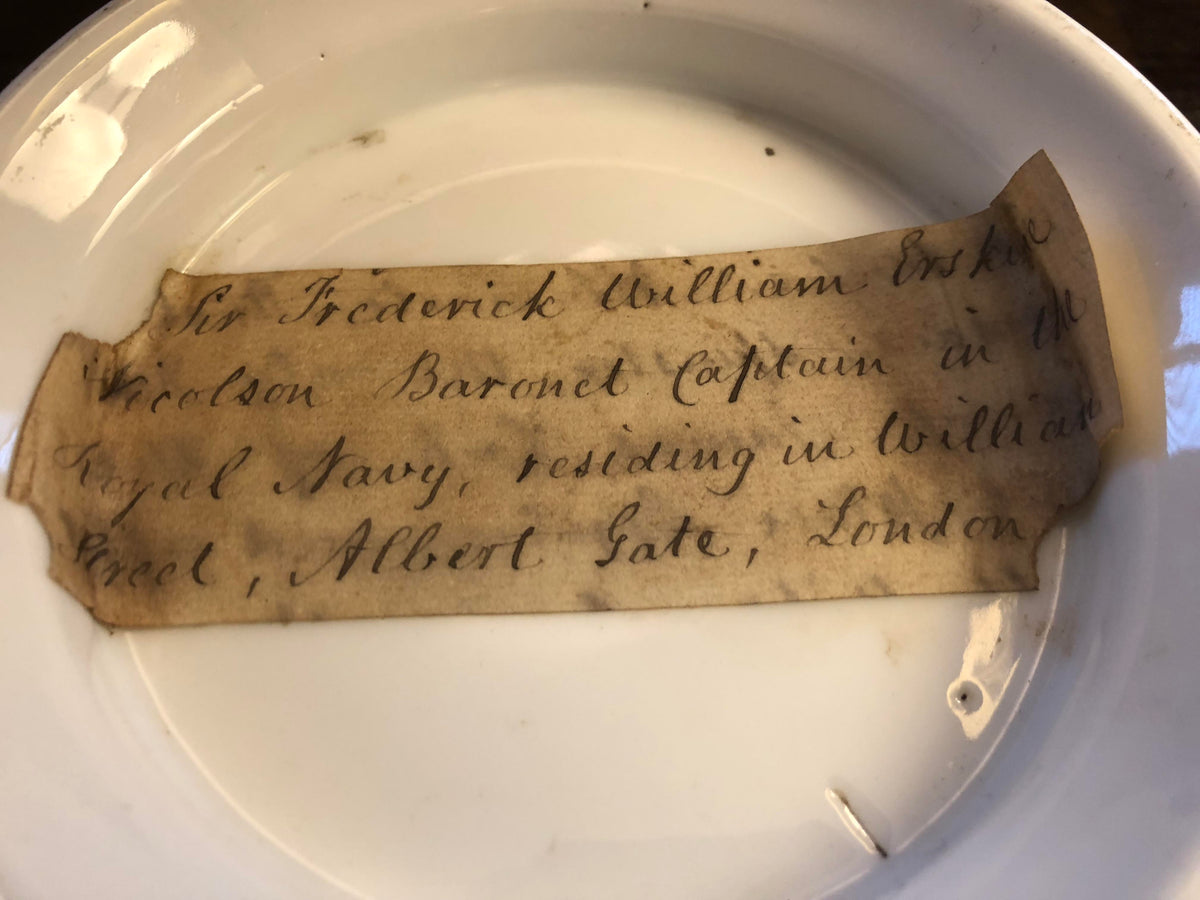 Sir Frederick William Erskine
Nicolson Baronet Captain in the
Royal Navy, residing in William
Street, Albert Gate, London